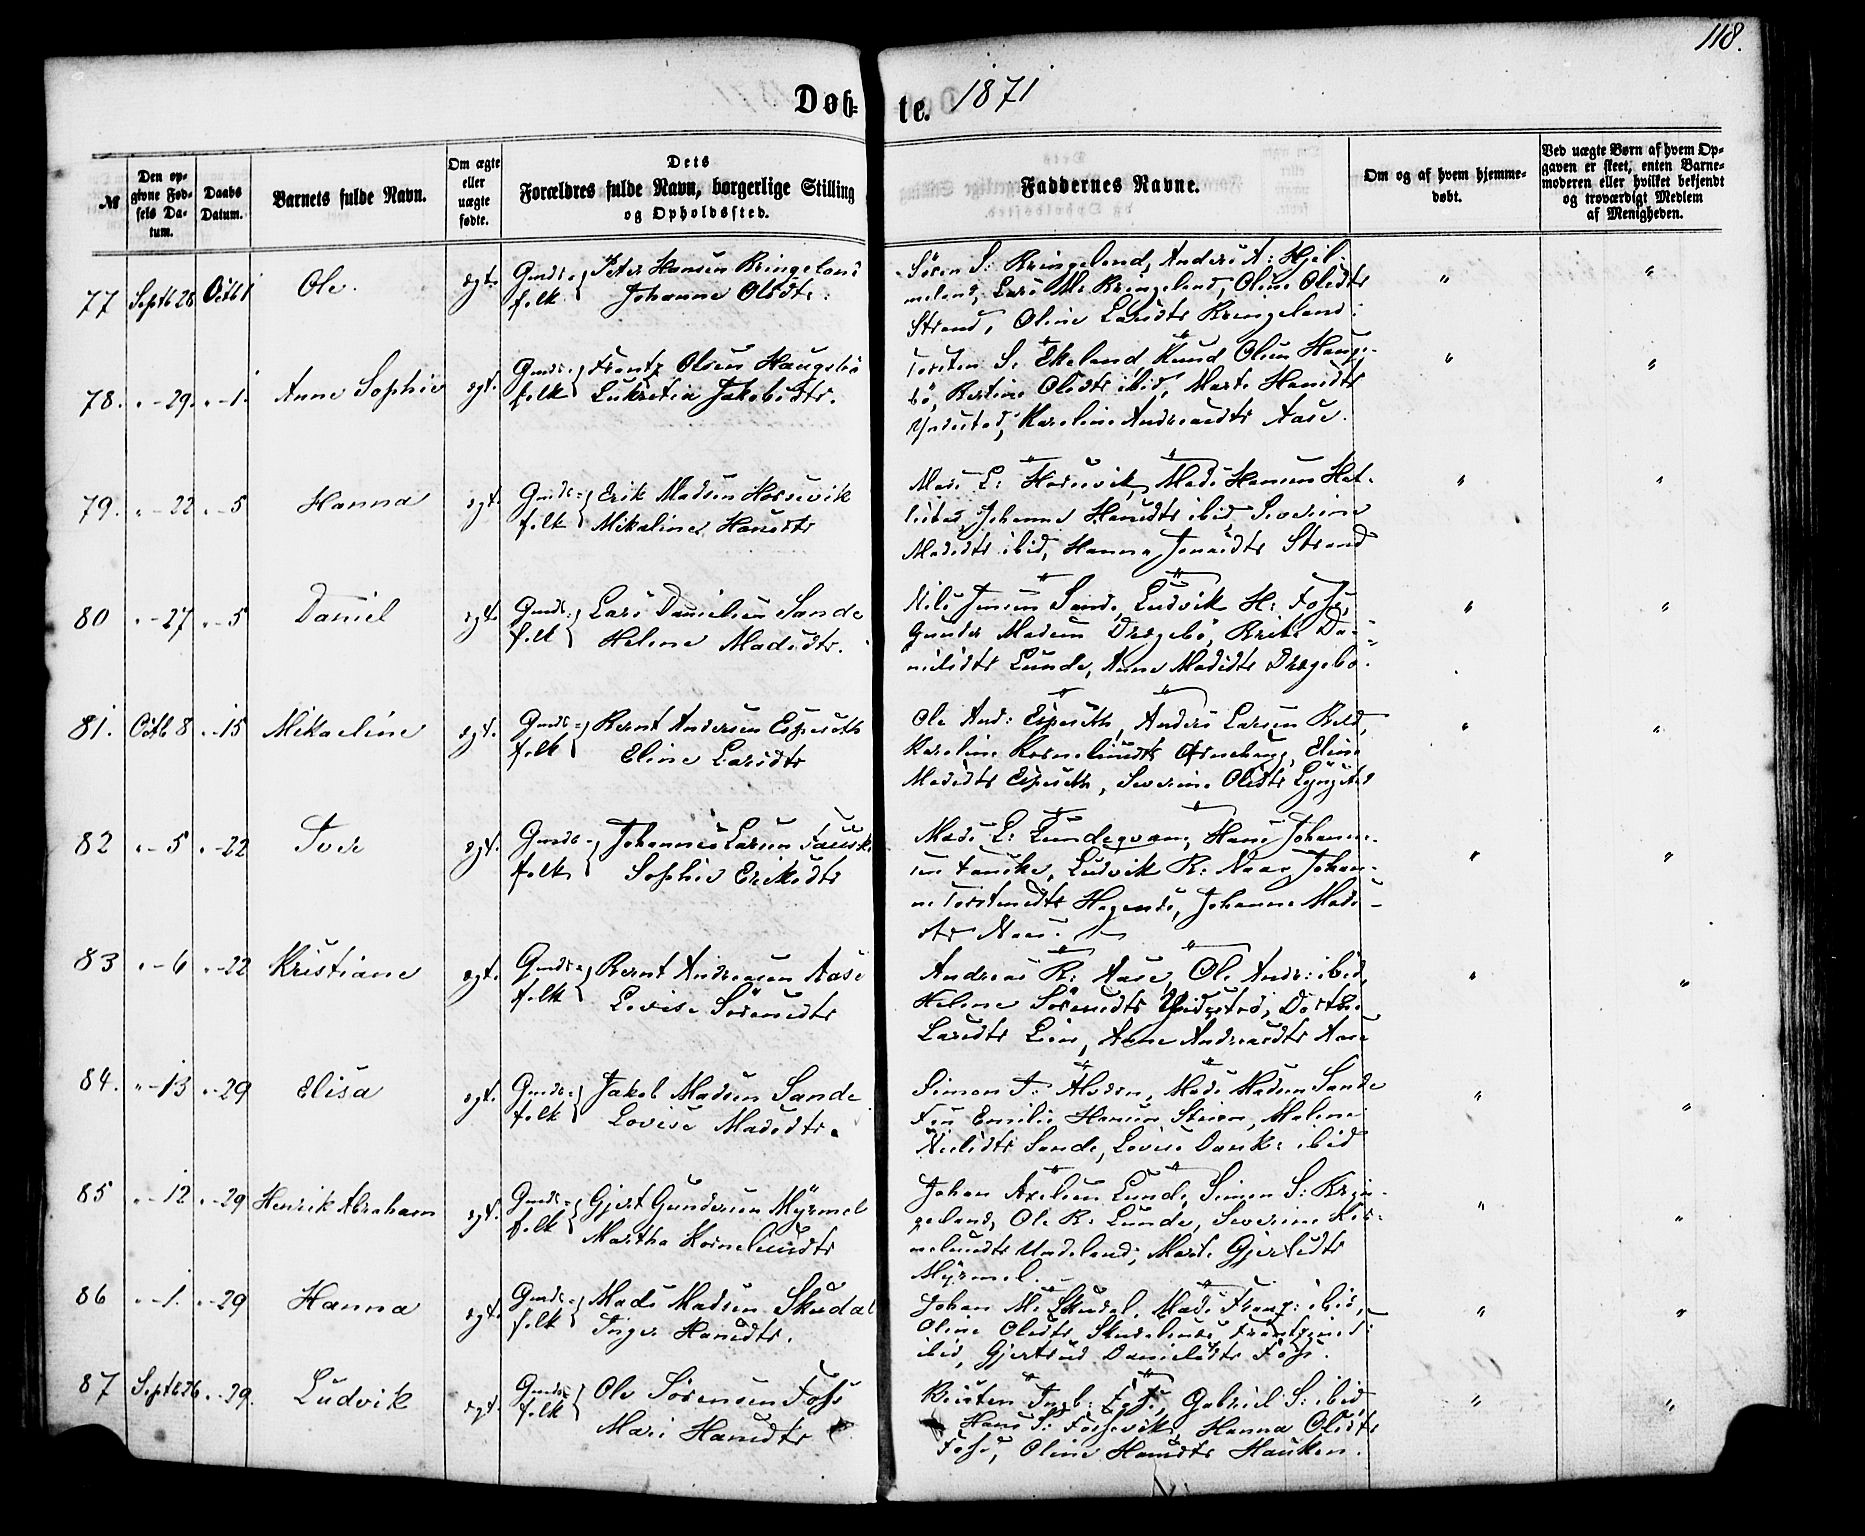 118.
Døb- te. 1871
№
Den opgivne Fødsels Datum.
Daabs Datum.
Barnets fulde Navn.
Om ægte eller uægte fødte.
Dets Forældres fulde Navn, borgerlige Stilling og Opholdssted.
Faddernes Navne.
Om og af hvem hjemmedøbt.
Ved uægte Børn af hvem Opgaven er skeet, enten Barnemoderen eller hvilket bekjendt og troværdigt Medlem af Menigheden.
77 Septb 28 Octb 1 Ole. egt. Gmds- folk { Peter Hansen Kringeland
Johanne Olsdtr.
Søren S: Kringeland, Anders A: Hjel-
meland, Lars M: Kringeland, Oline Olsdtr
Strand, Oline Larsdtr Kringeland.
" "
78. " - 29. " - 1. Anne Sophie egt. Gmds- folk { Frantz Olsen Haugsbø
Lukretia Jakobsdtr.
Torsten S. Ekeland, Knud Olsen Haugs-
bø, Bertine Olsdtr ibid, Marte Hansdtr
Yndestad, Karoline Andreasdtr Aase.
" "
79. " - 22 " - 5 Hanna egt. Gmds- folk { Erik Madsen Horsevik
Mikaline Hansdtr
Mads E: Horsevik, Mads Hansen Hat-
lestad, Johanne Hansdtr ibid, Severine
Madsdtr ibid, Hanna Jonasdtr Strand
" "
80 " - 27 " - 5 Daniel egt. Gmds- folk { Lars Danielsen Sande
Helene Madsdtr.
Nils Jensen Sande, Ludvik H: Foss,
Gunder Madsen Dregebø, Brite Da-
nielsdtr Lunde, Anne Madsdtr Dregebø.
" "
81. Octb 8 " - 15 Mikaeline egt. Gmds- folk { Bernt Andersen Espeseth
Eline Larsdtr
Ole And: Espeseth, Anders Larsen Bell,
Karoline Korneliusdtr Eline
Madsdtr Espeseth, Severine Olsdtr Lyngstad
" "
82 " - 5 " - 22 Iver egt. Gmds- folk { Johannes Larsen Fauske
Sophie Eriksdtr
Mads L: Lundeqvam, Hans Johann-
sen Fauske, Ludvik R: Naas, Johan-
ne Torstensdtr Hagende, Johanne Mads-
dtr Naas.
" "
83 " - 6 " - 22 Kristiane egt. Gmds- folk { Bernt Andreasen Aase
Lovise Sørensdtr
Andreas B: Aase, Ole Andr: ibid,
Helene Sørensdtr Yndestad, Dorthe
Larsdtr Lien, Anne Andreasdtr Aase
" "
84. " - 13 " - 29 Elisa egt. Gmds- folk { Jakob Madsen Sande
Lovise Madsdtr.
Simon J: Moden, Mads Madsen Sande
Emilie Hansen Steien, Malene
Nielsdtr Sande, Lovise Dank: ibid
" "
85 " - 12 " - 29 Henrik Abraham egt. Gmds- folk { Gjert Gundersen Myrmel
Martha Korneliusdtr
Johan Axelsen Lunde, Simon S: Krin-
geland, Ole R: Lunde, Severine Kor-
neliusdtr Undeland, Marte Gjertsdtr
Myrmel.
" "
86 " - 1. " - 29 Hanna egt. Gmds- folk { Mads Madsen Skudal
Inger Hansdtr.
Johan M: Skudal, Mads Frantz: ibid,
Oline Olsdtr
ibid, Gjertrud Danielsdtr Foss.
" "
87 Septb 26 " - 29. Ludvik egt. Gmds- folk { Ole Sørensen Foss
Mari Hansdtr
Reisten Ingb: Foss, Gabriel S: ibid,
Hans S: Fossevik, Hanna Olsdtr
Foss, Oline Hansdtr Hauken.
" "